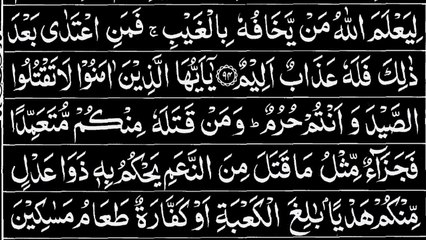 لِيَعۡلَمَ اللّٰهُ مَنۡ يَّخَافُهٗ بِالۡغَيۡبِ‌ ۚ فَمَنِ اعۡتَدٰى بَعۡدَ
ذٰلِكَ فَلَهٗ عَذَابٌ اَلِيۡمٌ ﴿۹۴﴾ يٰۤاَيُّهَا الَّذِيۡنَ اٰمَنُوۡا لَا تَقۡتُلُوا
الصَّيۡدَ وَاَنۡـتُمۡ حُرُمٌ‌ ؕ وَمَنۡ قَتَلَهٗ مِنۡكُمۡ مُّتَعَمِّدًا
فَجَزَآءٌ مِّثۡلُ مَا قَتَلَ مِنَ النَّعَمِ يَحۡكُمُ بِهٖ ذَوَا عَدۡلٍ
مِّنۡكُمۡ هَدۡيًاۢ بٰلِغَ الۡـكَعۡبَةِ اَوۡ كَفَّارَةٌ طَعَامُ مَسٰكِيۡنَ